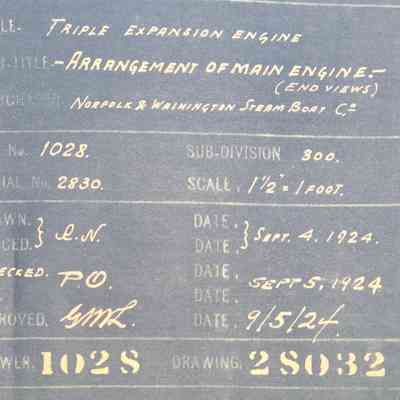 LE- TRIPLE EXPANSION ENGINE
B-TITLE- ARRANGEMENT OF MAIN ENGINE.-
(END VIEWS)
NORFOLK & WASHINGTON STEAM BOAT Co.
No. 1028. SUB-DIVISION 300.
IAL No. 2830. SCALE, 1½" = 1 FOOT.
WN. DATE,
CED. } I.N. DATE, } SEPT. 4. 1924.
ECKED. P.O. DATE, SEPT 5, 1924
DATE,
ROVED. DATE, 9/5/24.
WER. 1028 DRAWING, 28032